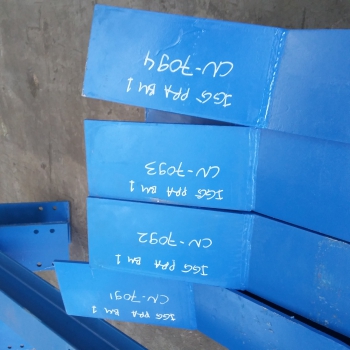 IGG PPA BM 1
CN-7091
IGG PPA BM 1
CN-7092
IGG PPA BM 1
CN-7093
IGG PPA BM 1
CN-7094